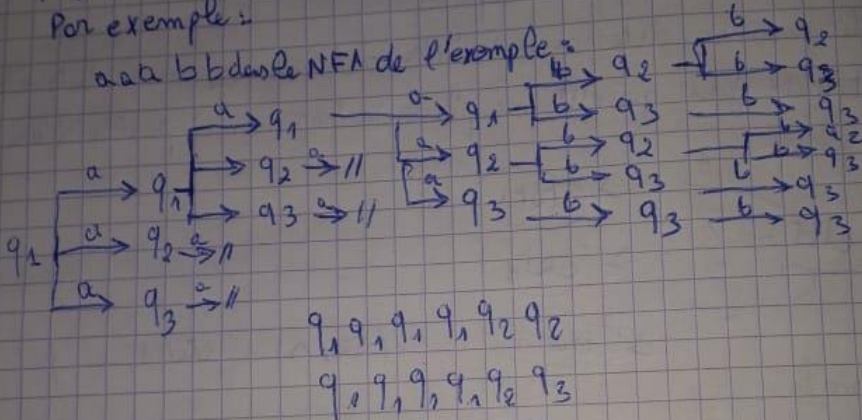 Par exemple:
aaa bb dans le NFA de l'exemple:
b q2 b q2
b q3
a q1 a q1 b q3 b q3
q2 a // a q2 b q2 b q2
b q3 b q3
a q1 q3 a // a q3 b q3 b q3
b q3
q1 a q2 a //
a q3 a //
q1 q1 q1 q1 q2 q2
q1 q1 q1 q1 q2 q3